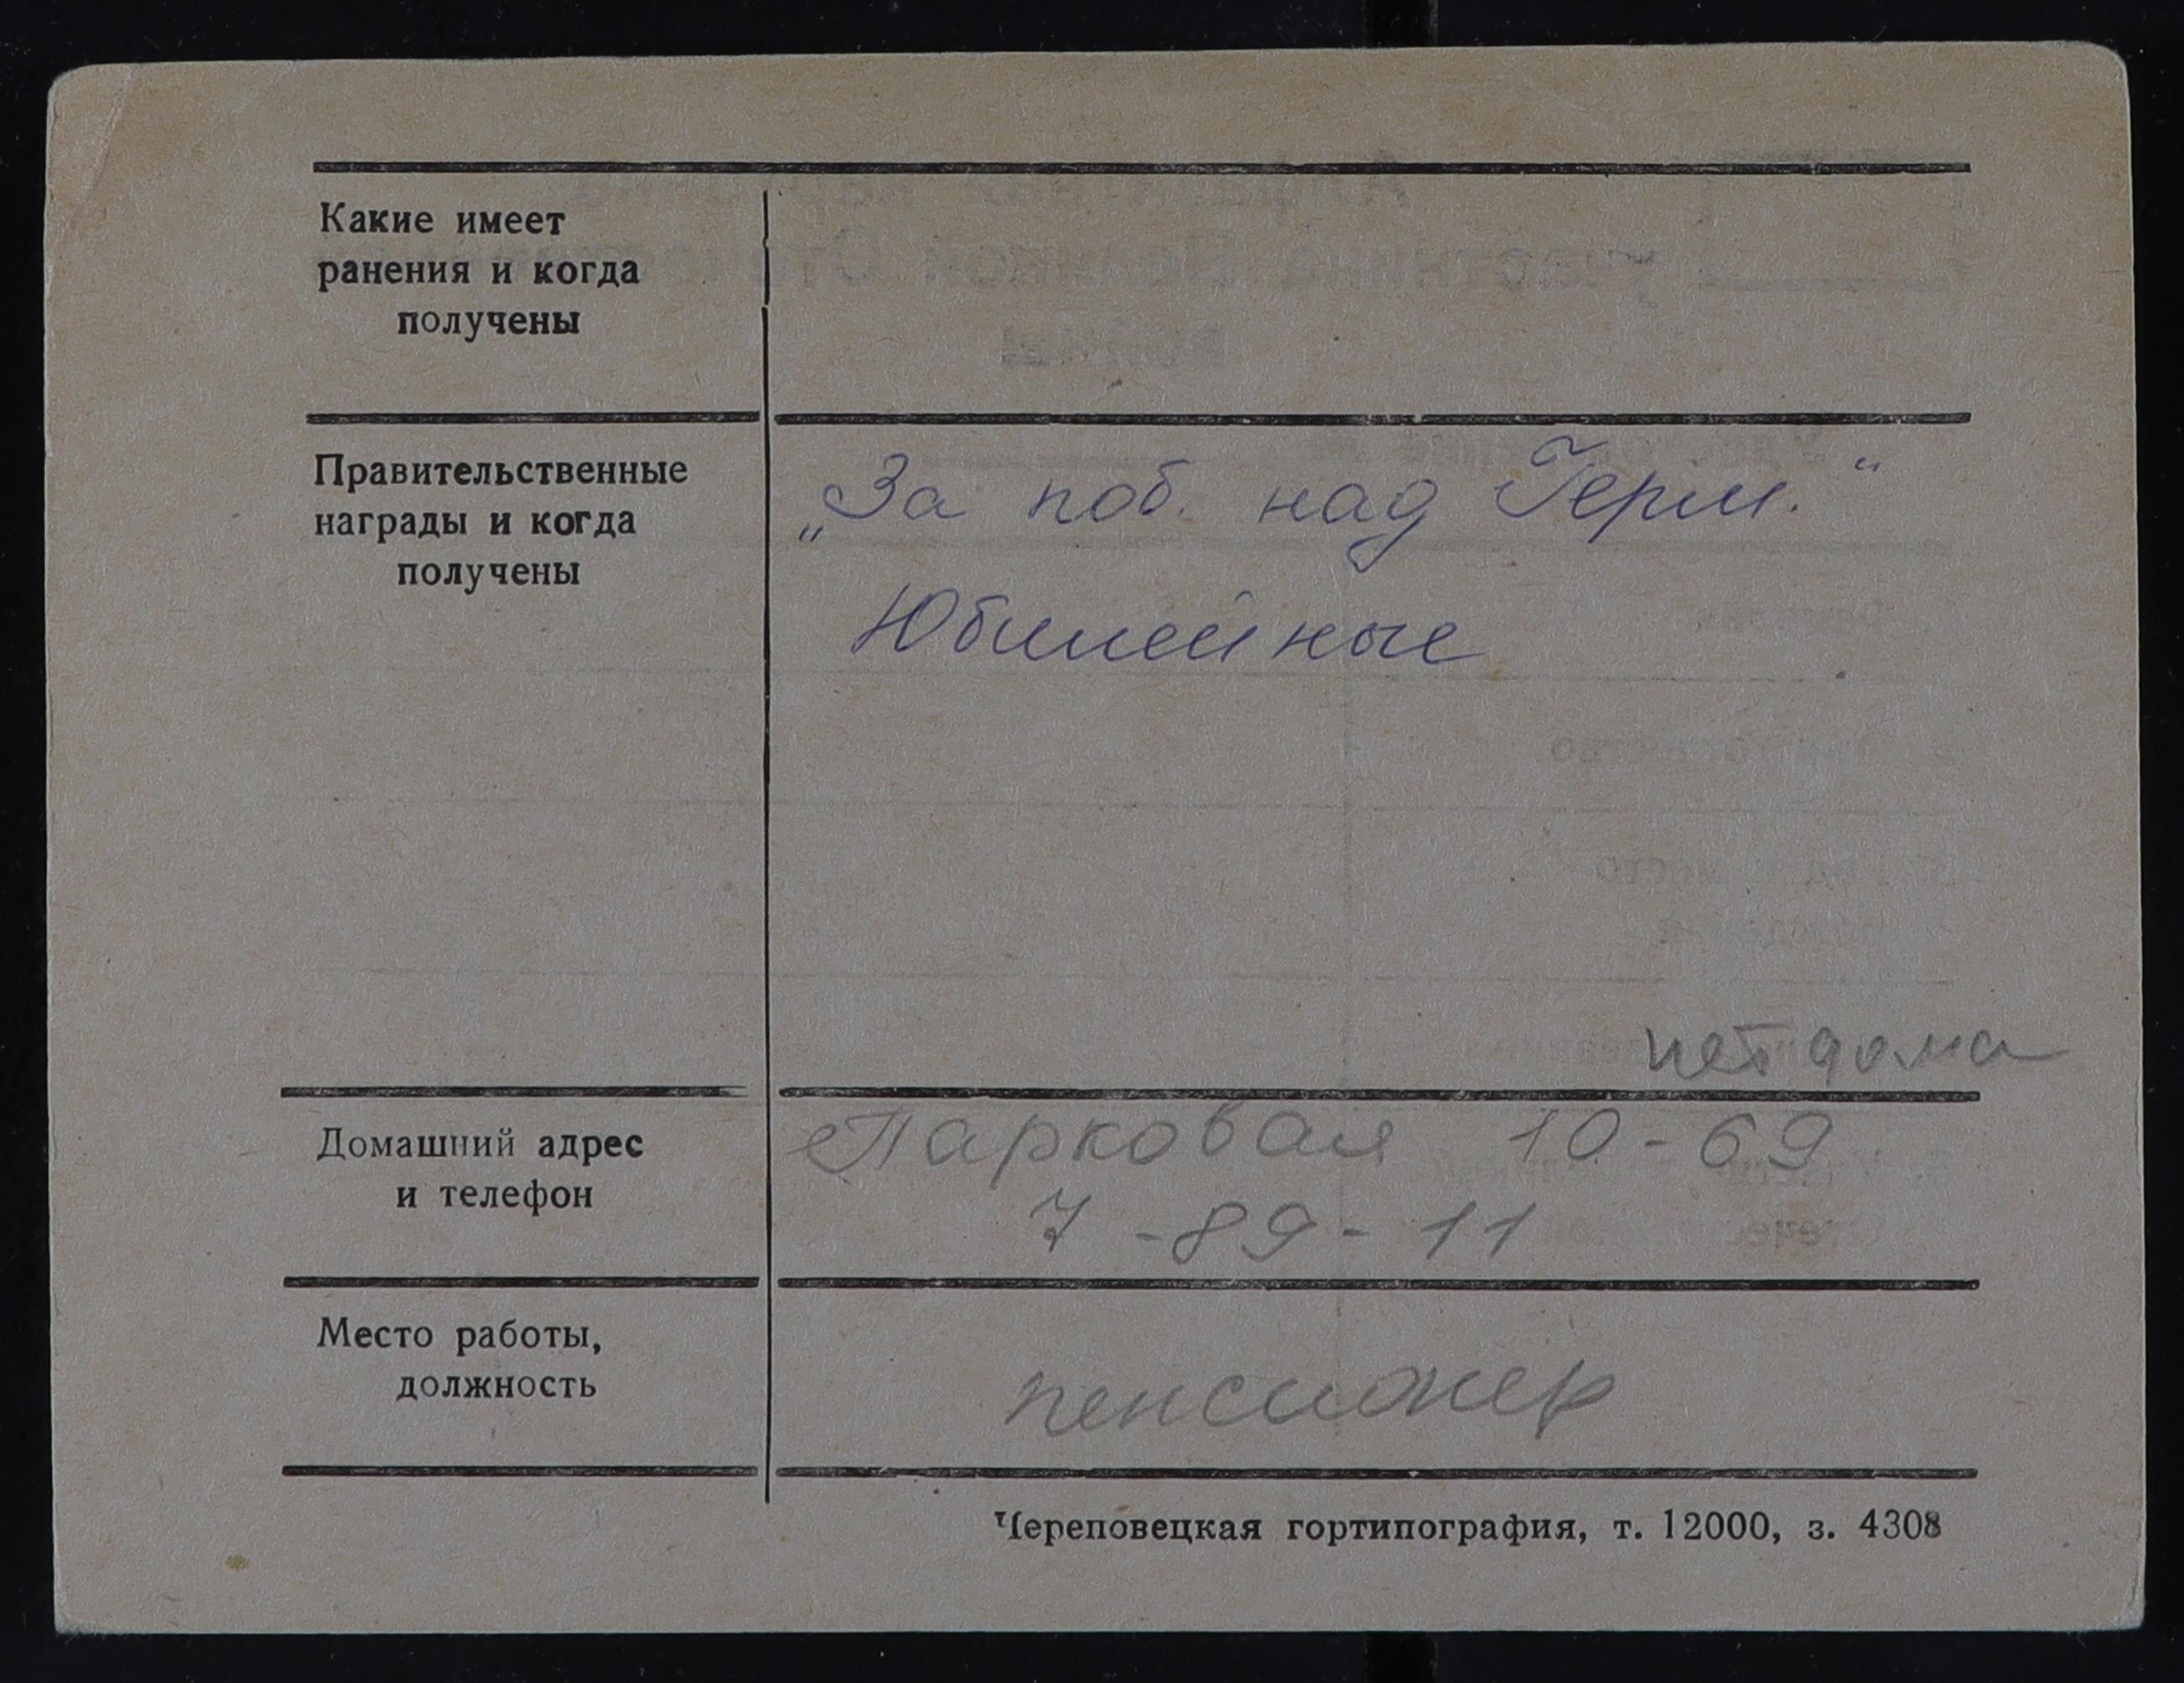 Какие имеет
ранения и когда
получены
Правительственные
награды и когда
получены
„За поб. над Герм.“
Юбилейные
нет дома
Домашний адрес
и телефон
Парковая 10-69
7-89-11
Место работы,
должность
пенсионер
Череповецкая гортипография, т. 12000, з. 4308